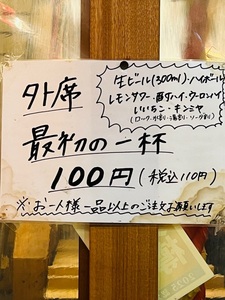 外席
生ビール(300ml)・ハイボール
レモンサワー・酎ハイ・ウーロンハイ
いいちこ・キンミヤ
(ロック・水割り・湯割り・ソーダ割り)
最初の一杯
100円(税込110円)
※お一人様一品以上のご注文お願いします